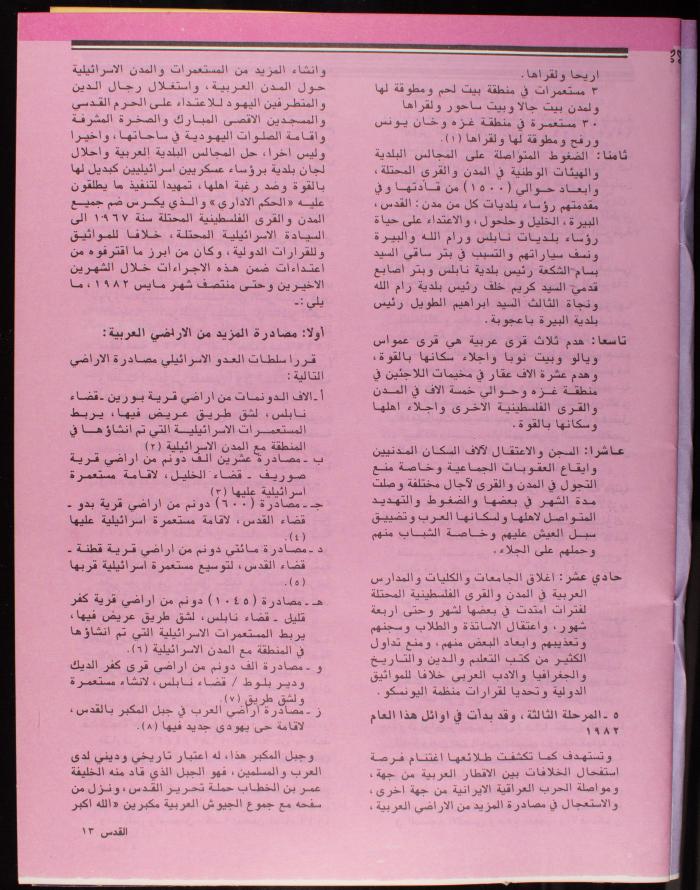 اريحا ولقراها.
٣ مستعمرات في منطقة بيت لحم ومطوقة لها
ولمدن بيت جالا وبيت ساحور ولقراها
٣٠ مستعمرة في منطقة غزه وخان يونس
ورفح ومطوقة لها ولقراها (١).
ثامنا: الضغوط المتواصلة على المجالس البلدية
والهيئات الوطنية في المدن والقرى المحتلة،
وابعاد حوالي (١٥٠٠) من قادتها وفي
مقدمتهم رؤساء بلديات كل من مدن: القدس،
البيرة، الخليل وحلحول، والاعتداء على حياة
رؤساء بلديات نابلس ورام الله والبيرة
ونسف سياراتهم والتسبب في بتر ساقي السيد
بسام الشكعة رئيس بلدية نابلس وبتر اصابع
قدمي السيد كريم خلف رئيس بلدية رام الله
ونجاة الثالث السيد ابراهيم الطويل رئيس
بلدية البيرة باعجوبة.
تاسعا: هدم ثلاث قرى عربية هي قرى عمواس
ويالو وبيت نوبا واجلاء سكانها بالقوة،
وهدم عشرة الاف عقار في مخيمات اللاجئين في
منطقة غزه وحوالي خمسة الاف في المدن
والقرى الفلسطينية الاخرى واجلاء اهلها
وسكانها بالقوة.
عاشرا: السجن والاعتقال لآلاف السكان المدنيين
وايقاع العقوبات الجماعية وخاصة منع
التجول في المدن والقرى لآجال مختلفة وصلت
مدة الشهر في بعضها والضغوط والتهديد
المتواصل لاهلها ولسكانها العرب وتضييق
سبل العيش عليهم وخاصة الشباب منهم
وحملهم على الجلاء.
حادي عشر: اغلاق الجامعات والكليات والمدارس
العربية في المدن والقرى الفلسطينية المحتلة
لفترات امتدت في بعضها لشهر وحتى اربعة
شهور، واعتقال الاساتذة والطلاب وسجنهم
وتعذيبهم وابعاد البعض منهم، ومنع تداول
الكثير من كتب التعلم والدين والتاريخ
والجغرافيا والادب العربي خلافا للمواثيق
الدولية وتحديا لقرارات منظمة اليونسكو.
٥ - المرحلة الثالثة، وقد بدأت في اوائل هذا العام
١٩٨٢
وتستهدف كما تكشفت طلائعها اغتنام فرصة
استفحال الخلافات بين الاقطار العربية من جهة،
ومواصلة الحرب العراقية الايرانية من جهة اخرى،
والاستعجال في مصادرة المزيد من الاراضي العربية،
وانشاء المزيد من المستعمرات والمدن الاسرائيلية
حول المدن العربية، واستغلال رجال الدين
والمتطرفين اليهود للاعتداء على الحرم القدسي
والمسجدين الاقصى المبارك والصخرة المشرفة
واقامة الصلوات اليهودية في ساحاتها، واخيرا
وليس اخرا، حل المجالس البلدية العربية واحلال
لجان بلدية برؤساء عسكريين اسرائيليين كبديل لها
بالقوة وضد رغبة اهلها، تمهيدا لتنفيذ ما يطلقون
عليه «الحكم الاداري» والذي يكرس ضم جميع
المدن والقرى الفلسطينية المحتلة سنة ١٩٦٧ الى
السيادة الاسرائيلية المحتلة، خلافا للمواثيق
وللقرارات الدولية، وكان من ابرز ما اقترفوه من
اعتداءات ضمن هذه الاجراءات خلال الشهرين
الاخيرين وحتى منتصف شهر مايس ١٩٨٢، ما
يلي:-
أولا: مصادرة المزيد من الاراضي العربية:
قررا سلطات العدو الاسرائيلي مصادرة الاراضي
التالية:
أ - الاف الدونمات من اراضي قرية بورين - قضاء
نابلس، لشق طريق عريض فيها، يربط
المستعمرات الاسرائيلية التي تم انشاؤها في
المنطقة مع المدن الاسرائيلية (٢)
ب - مصادرة عشرين الف دونم من اراضي قرية
صوريف - قضاء الخليل، لاقامة مستعمرة
اسرائيلية عليها (٣)
جـ - مصادرة (٦٠٠) دونم من اراضي قرية بدو -
قضاء القدس، لاقامة مستعمرة اسرائيلية عليها
(٤).
د - مصادرة مائتي دونم من اراضي قرية قطنة -
قضاء القدس، لتوسيع مستعمرة اسرائيلية قربها
(٥).
هـ - مصادرة (١٠٤٥) دونم من اراضي قرية كفر
قليل - قضاء نابلس، لشق طريق عريض فيها،
يربط المستعمرات الاسرائيلية التي تم انشاؤها
في المنطقة مع المدن الاسرائيلية (٦).
و - مصادرة الف دونم من اراضي قرى كفر الديك
ودير بلوط / قضاء نابلس، لانشاء مستعمرة
ولشق طريق (٧)
ز - مصادرة اراضي العرب في جبل المكبر بالقدس،
لاقامة حي يهودي جديد فيها (٨).
وجبل المكبر هذا، له اعتبار تاريخي وديني لدى
العرب والمسلمين، فهو الجبل الذي قاد منه الخليفة
عمر بن الخطاب حملة تحرير القدس، ونزل من
سفحه مع جموع الجيوش العربية مكبرين «الله اكبر
القدس ١٣